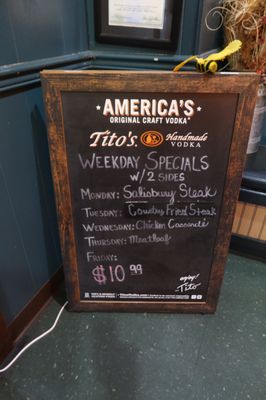 AMERICA'S
ORIGINAL CRAFT VODKA
Tito's Handmade
VODKA
WEEKDAY SPECIALS
W/ 2 SIDES
MONDAY: Salisbury Steak
TUESDAY: Country Fried Steak
WEDNESDAY: Chicken
THURSDAY: Meatloaf
FRIDAY:
$10.99
enjoy!
Tito